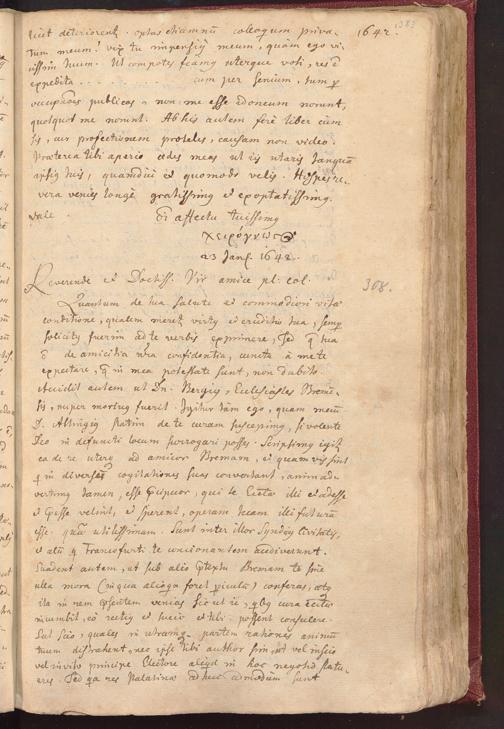 1642.
dicet deteriorem. optas etiamnum colloquium priva-
tum meum. vix tu impensiꝰ meum, quàm ego vi-
cissim tuum. Ut compotes fiamꝰ uterque voti, res ē
expedita . . . . cum per senium, tum ꝑ
occupãoes publicas non me esse idoneum norunt,
quotquot me norunt. Ab his autem ferè liber cùm
sis, cur profectionem proteles, causam non video.
Præterea tibi aperio ædes meas ut iis utaris tanquā
apsis tuis, quamdiu et quomodo velis. Hospes re-
vera venies longè gratissimꝰ et exoptatissimꝰ.
Vale. Ei affectu tuissimꝰ
χειρόγνως
23 Janꝶ. 1642.
368.
Reverende et Doctiss. Vir amice pl. col.
Quantum de tua salute et commodiori vitæ
conditione, qualem meretꝶ virtꝰ et eruditio tua, semꝑ
solicitꝰ fuerim ad te verbis exprimere, sed q̃ tua
ē de amicitia nr̃a confidentia, cuncta à me te
expectare, q̃ in mea potestate sunt, non dubito.
Accidit autem ut Dn. Bergiꝰ, Ecclesiastes Bremē-
sis, nuper mortuꝰ fuerit. Igitur tàm ego, quam meuꝰ
D. Altingiꝰ statim de te curam suscepimꝰ, si volente
Deo in defuncti locum surrogari posses. Scripsimꝰ igitꝶ
ea de re uterqꝫ ad amicos Bremam, et quamvis sint
ꝗ in diversas cogitationes suas convertant, animad-
vertimꝰ tamen, esse præcipuos, qui te lecta illi et adesse
et præesse velint, et sperent, operam tuam illi futurā
esse quàm utilissimam. Sunt inter illos Syndicꝰ civitatis,
et alii ꝗ Francofurti te concionantem audiverunt.
Suadent autem, ut sub alio prætextu Bremam te sine
ulla mora (in qua alioqui foret periculū) conferas, atqꝫ
ita in rem præsentem venias. Sic ut ii, qibꝰ cura ecclīæ
incumbit, eò rectiꝰ et suæ et tibi possent consulere.
Sat scio, quales in utramqꝫ partem rationes animum
tuum distrahent, nec ipse tibi author sim, ut vel inscio
vel invito principe Electore aliqd in hoc negotio statu-
eris. Sed qa res Palatinæ adhuc admodum sunt